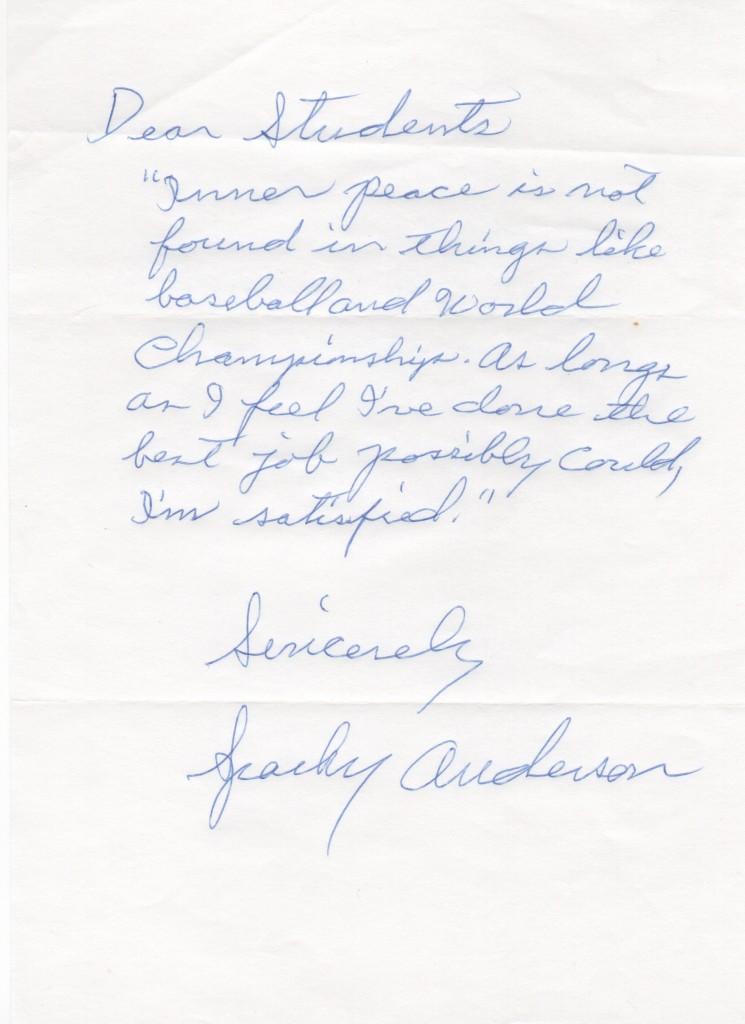 Dear Students
"Inner peace is not
found in things like
baseball and World
Championships. As longs
as I feel I've done the
best job possibly could,
I'm satisfied."
Sincerely
Sparky Anderson